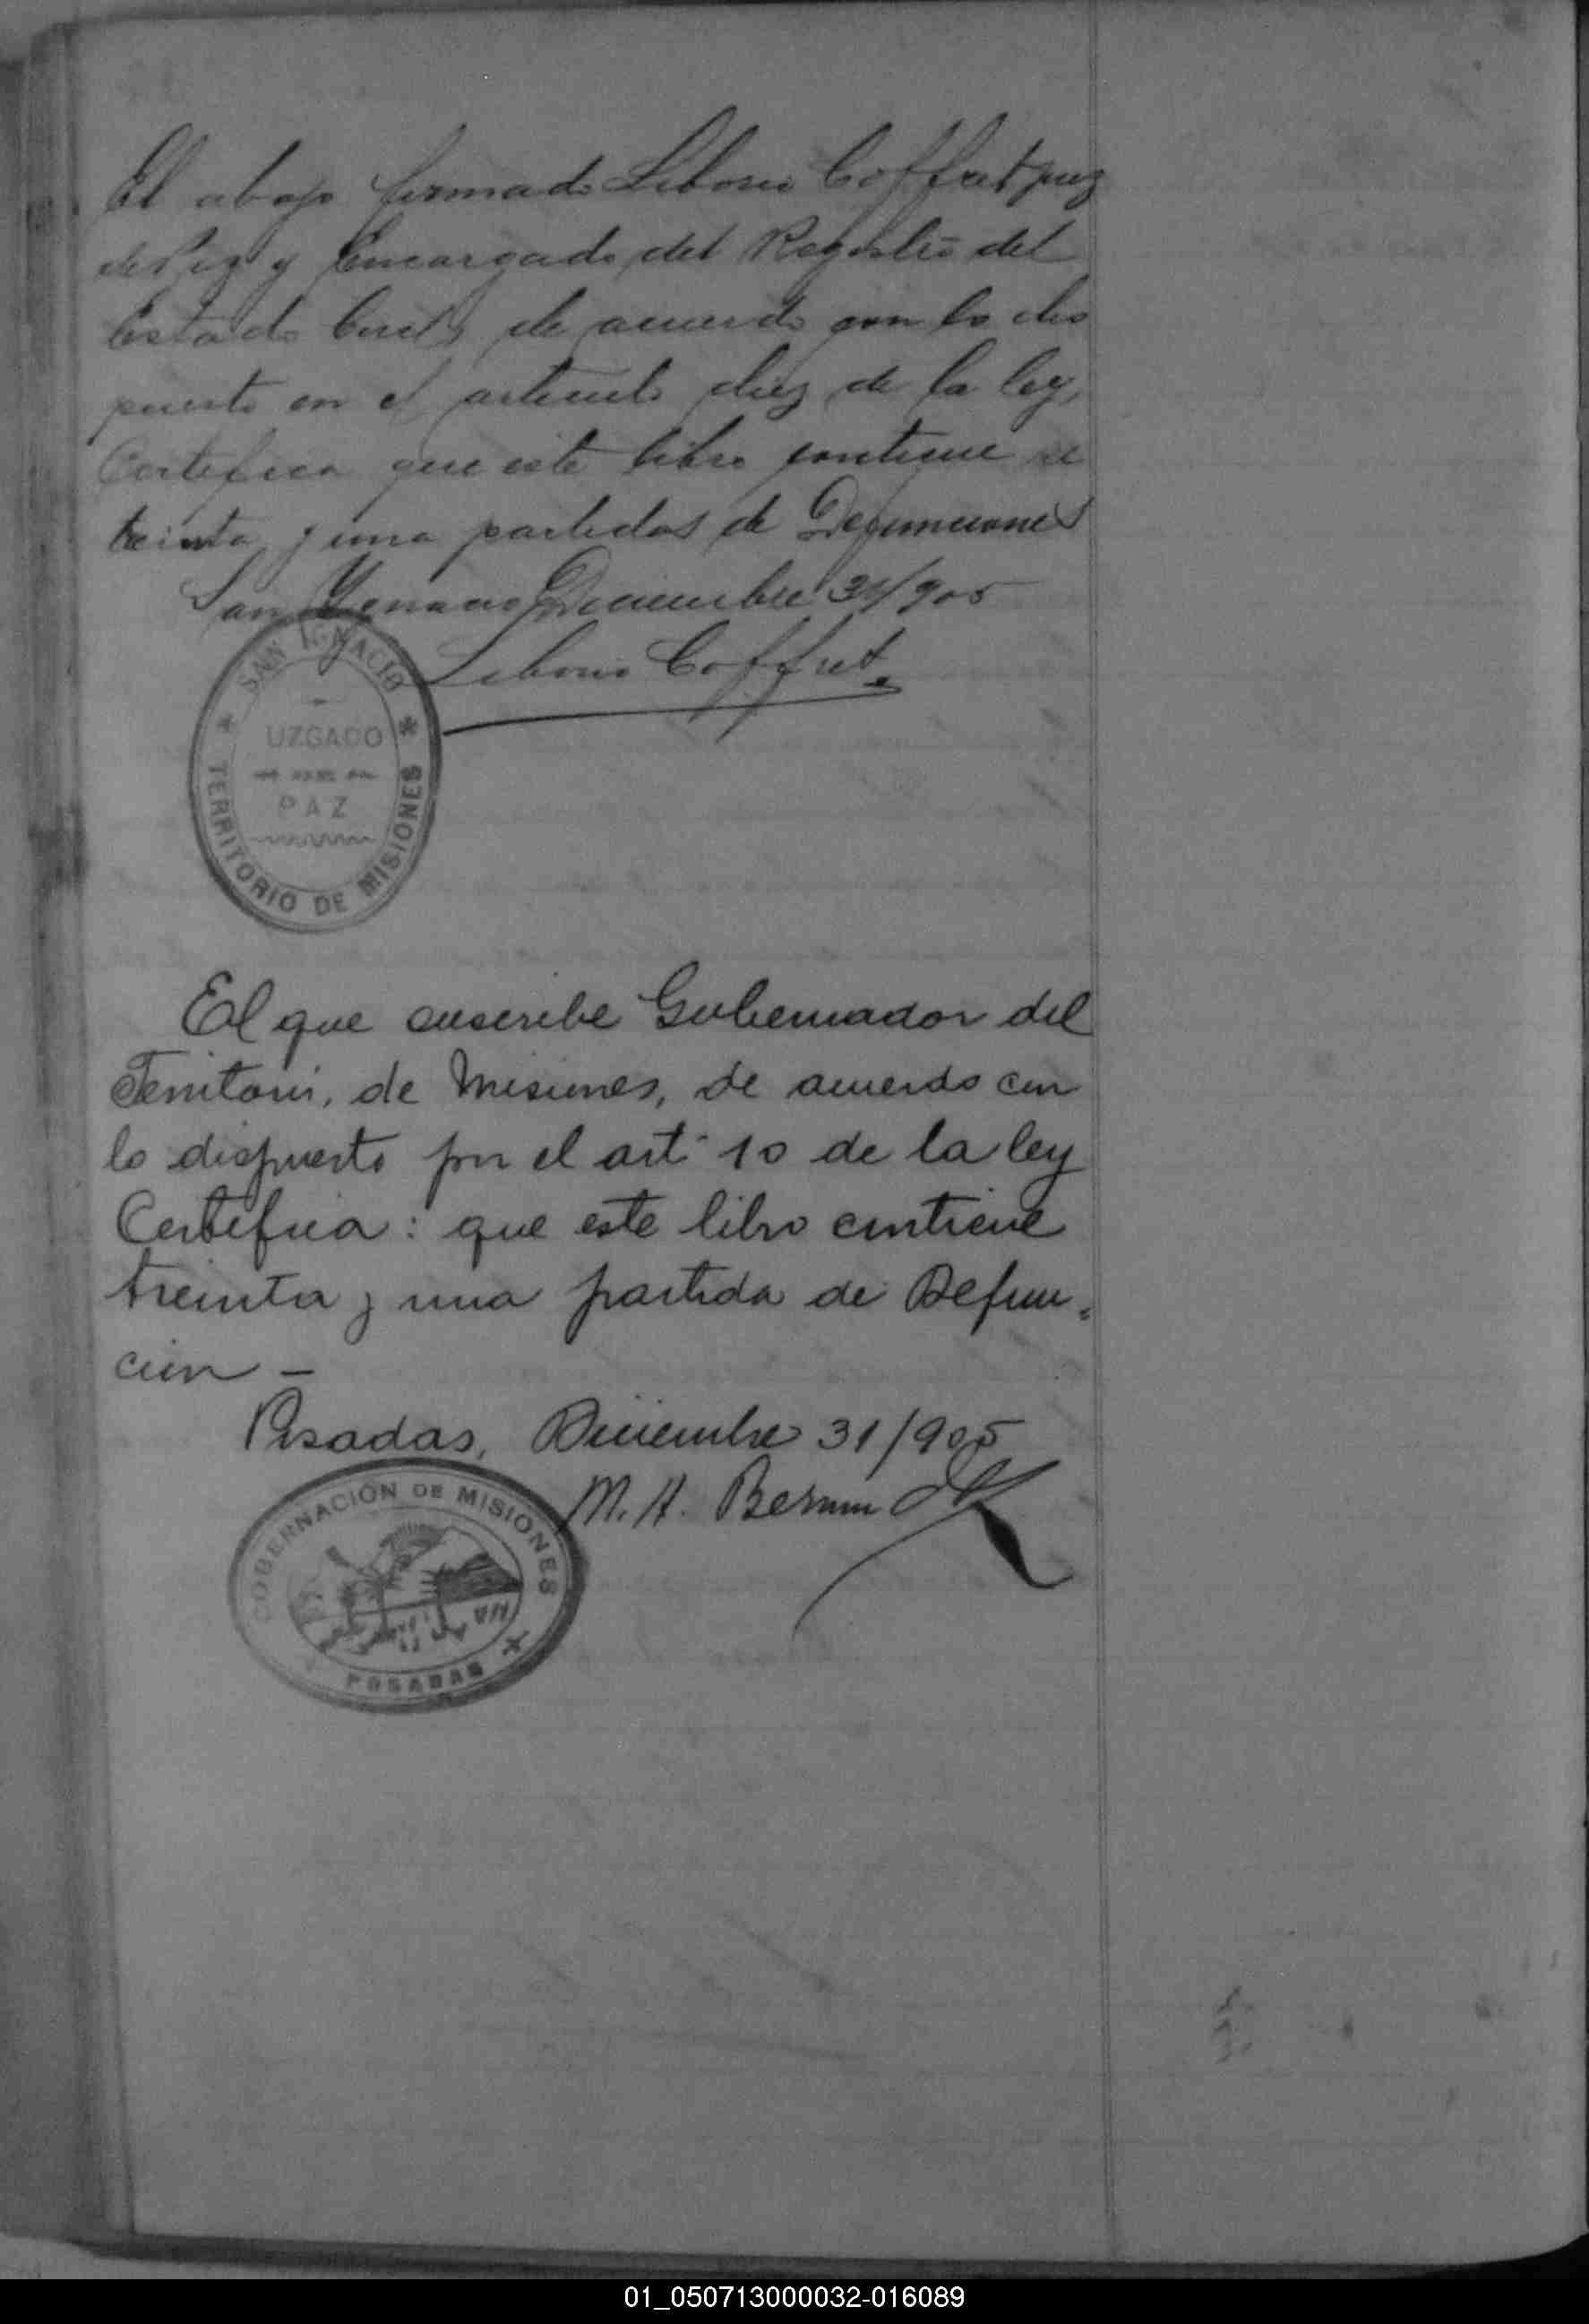 El abajo firmado Liborio Coffret juez
de Paz y Encargado del Registro del
Estado Civil, de acuerdo con lo dis
puesto en el articulo diez de la ley,
Certifica que este libro contiene
treinta y una partidas de Defunciones
San Ygnacio Diciembre 31/905
Liborio Coffret.
SAN IGNACIO
UZGADO
PAZ
TERRITORIO DE MISIONES
El que suscribe Gobernador del
Territorio, de Misiones, de acuerdo con
lo dispuesto por el art 10 de la ley
Certifica: que este libro contiene
treinta y una partida de Defun-
cion —
Posadas, Diciembre 31/905
M. A.
GOBERNACION DE MISIONES
POSADAS
01_050713000032-016089